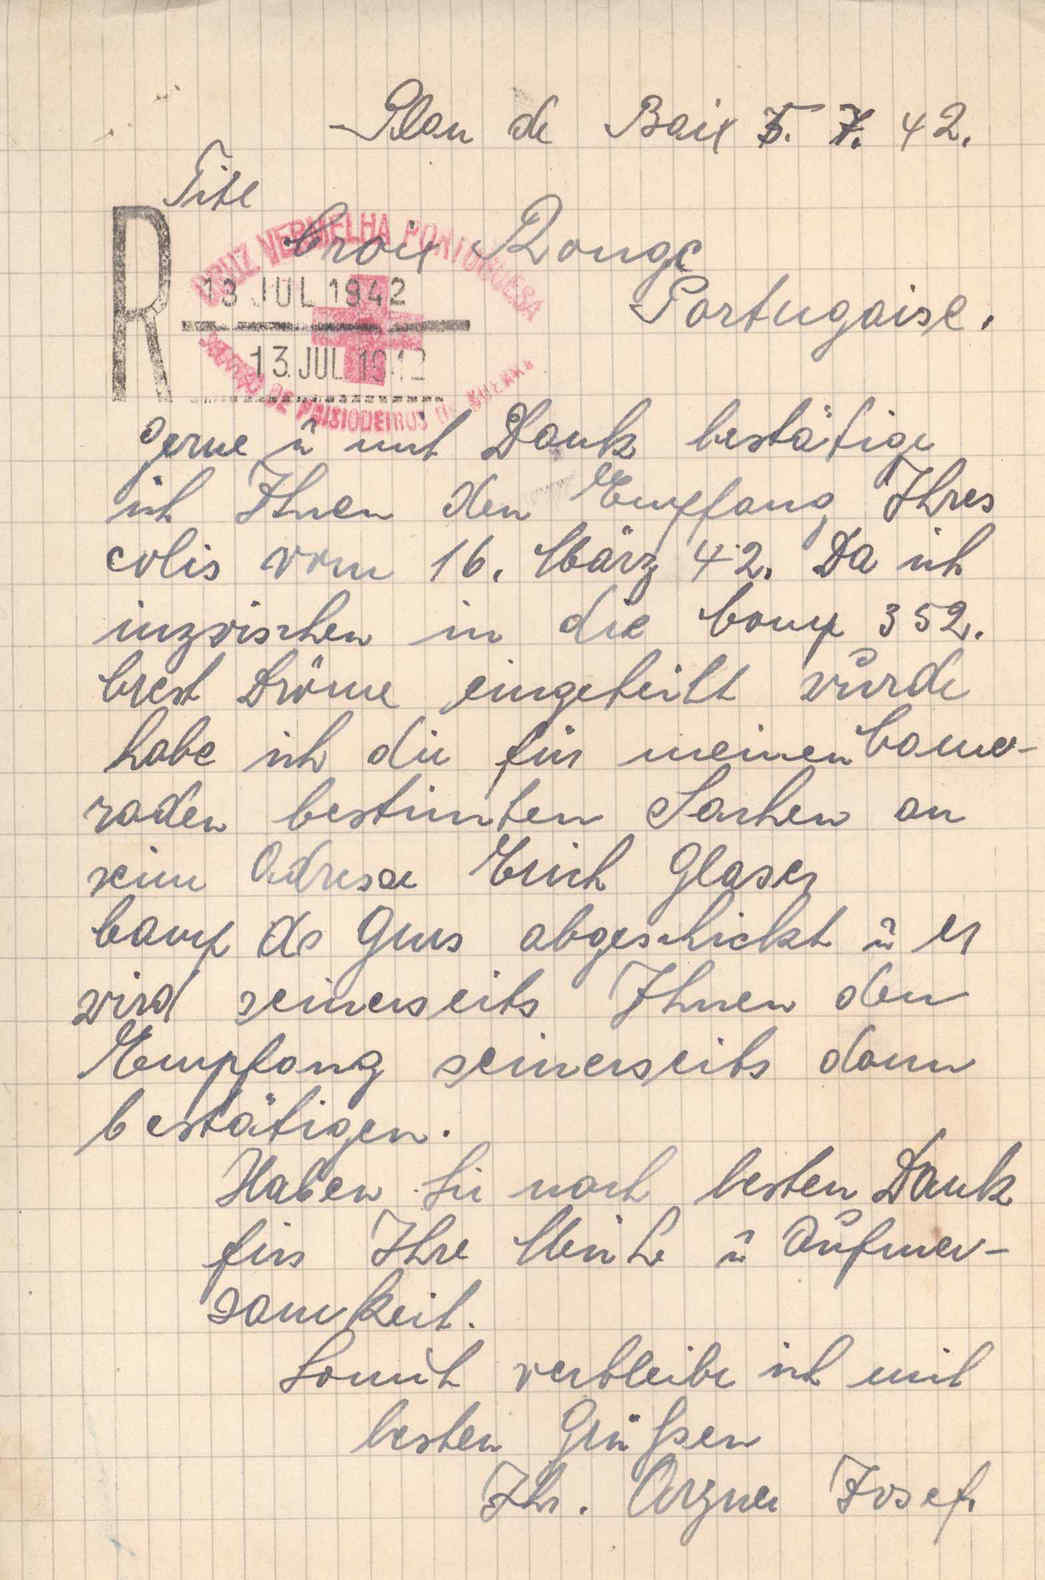 Plan de Baix 5. 7. 42.
Tit.
Croix Rouge
Portugaise.
R
CRUZ VERMELHA PORTUGUESA
13 JUL 1942
13. JUL 1942
DE PRISIONEIROS DE GUERRA
Gerne u mit Dank bestätige
ich Ihnen den Empfang Ihres
colis vom 16. März 42. Da ich
inzwischen in die Comp 352.
Crest Drôme eingeteilt wurde
habe ich die für meinen Came-
raden bestimten Sachen an
seine Adresse Erich Glaser
Camp de Gurs abgeschickt u er
wird seinerseits Ihnen den
Empfang seinerseits dann
bestätigen.
Haben Sie noch besten Dank
für Ihre Mühe u Aufmer-
samkeit.
Somit verbleibe ich mit
besten Grüßen
Ihr. Arzner Josef.